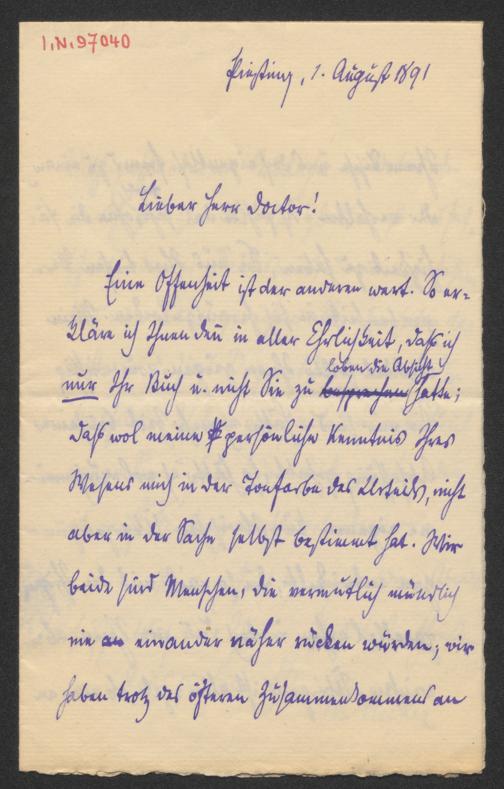 I.N.97040
Piesting, 1. August 1891
Lieber Herr Doctor!
Eine Offenheit ist der anderen wert. So er-
kläre ich Ihnen denn in aller Ehrlichkeit, daß ich
loben die Absicht
nur Ihr Buch u. nicht Sie zu besprechen hatte;
daß wol meine persönliche Kenntnis Ihres
Wesens mich in der Tonfarbe des Urteils, nicht
aber in der Sache selbst bestimmt hat. Wir
beide sind Menschen, die vermutlich mündlich
nie an einander näher rücken würden; wir
haben trotz des öfteren Zusammenkommens an